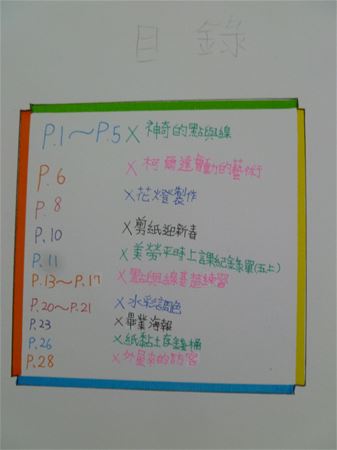 目錄
P.1～P.5 X 神奇的點與線
P.6 X 柯爾達動的藝術
P.8 X 花燈製作
P.10 X 剪紙迎新春
P.11 X 美勞平時上課紀錄單(五上)
P.13～P.17 X 點與線基礎練習
P.20～P.21 X 水彩調色
P.23 X 畢業海報
P.26 X 紙黏土存錢桶
P.28 X 外星來的訪客